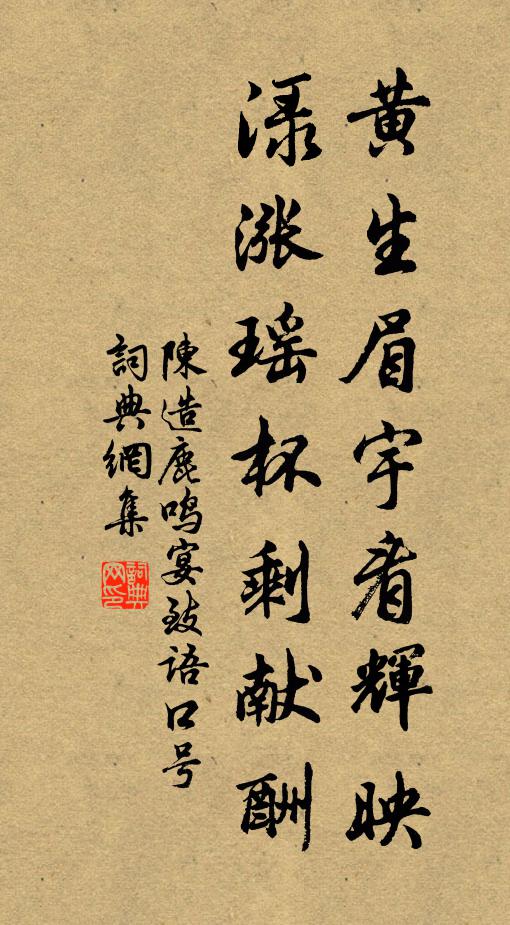 黄生眉宇看輝映
渌漲瑶杯剩献酬
陳造鹿鳴宴致语口号
詞典網集
詞典网印